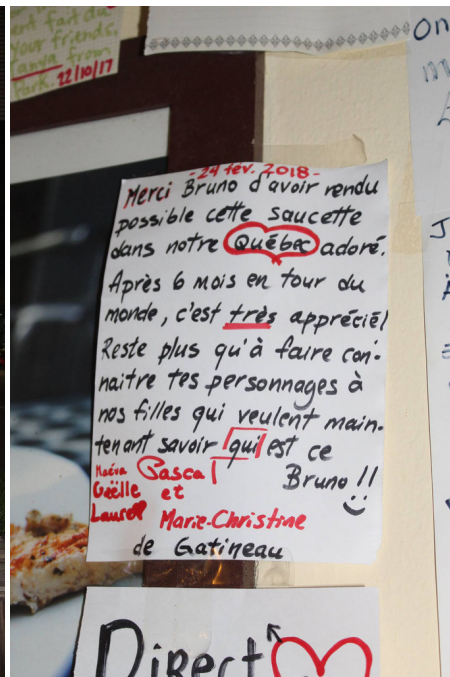 ent fait du
your friends,
Tanya from
Park. 22/10/17
On
-24 fév. 2018-
Merci Bruno d'avoir rendu
possible cette saucette
dans notre Québec adoré.
Après 6 mois en tour du
monde, c'est très apprécié!
Reste plus qu'à faire con-
naitre tes personnages à
nos filles qui veulent main-
tenant savoir qui est ce
Bruno !!
Maéva Pascal
Gaëlle et
Laurel Marie-Christine
de Gatineau
Direct